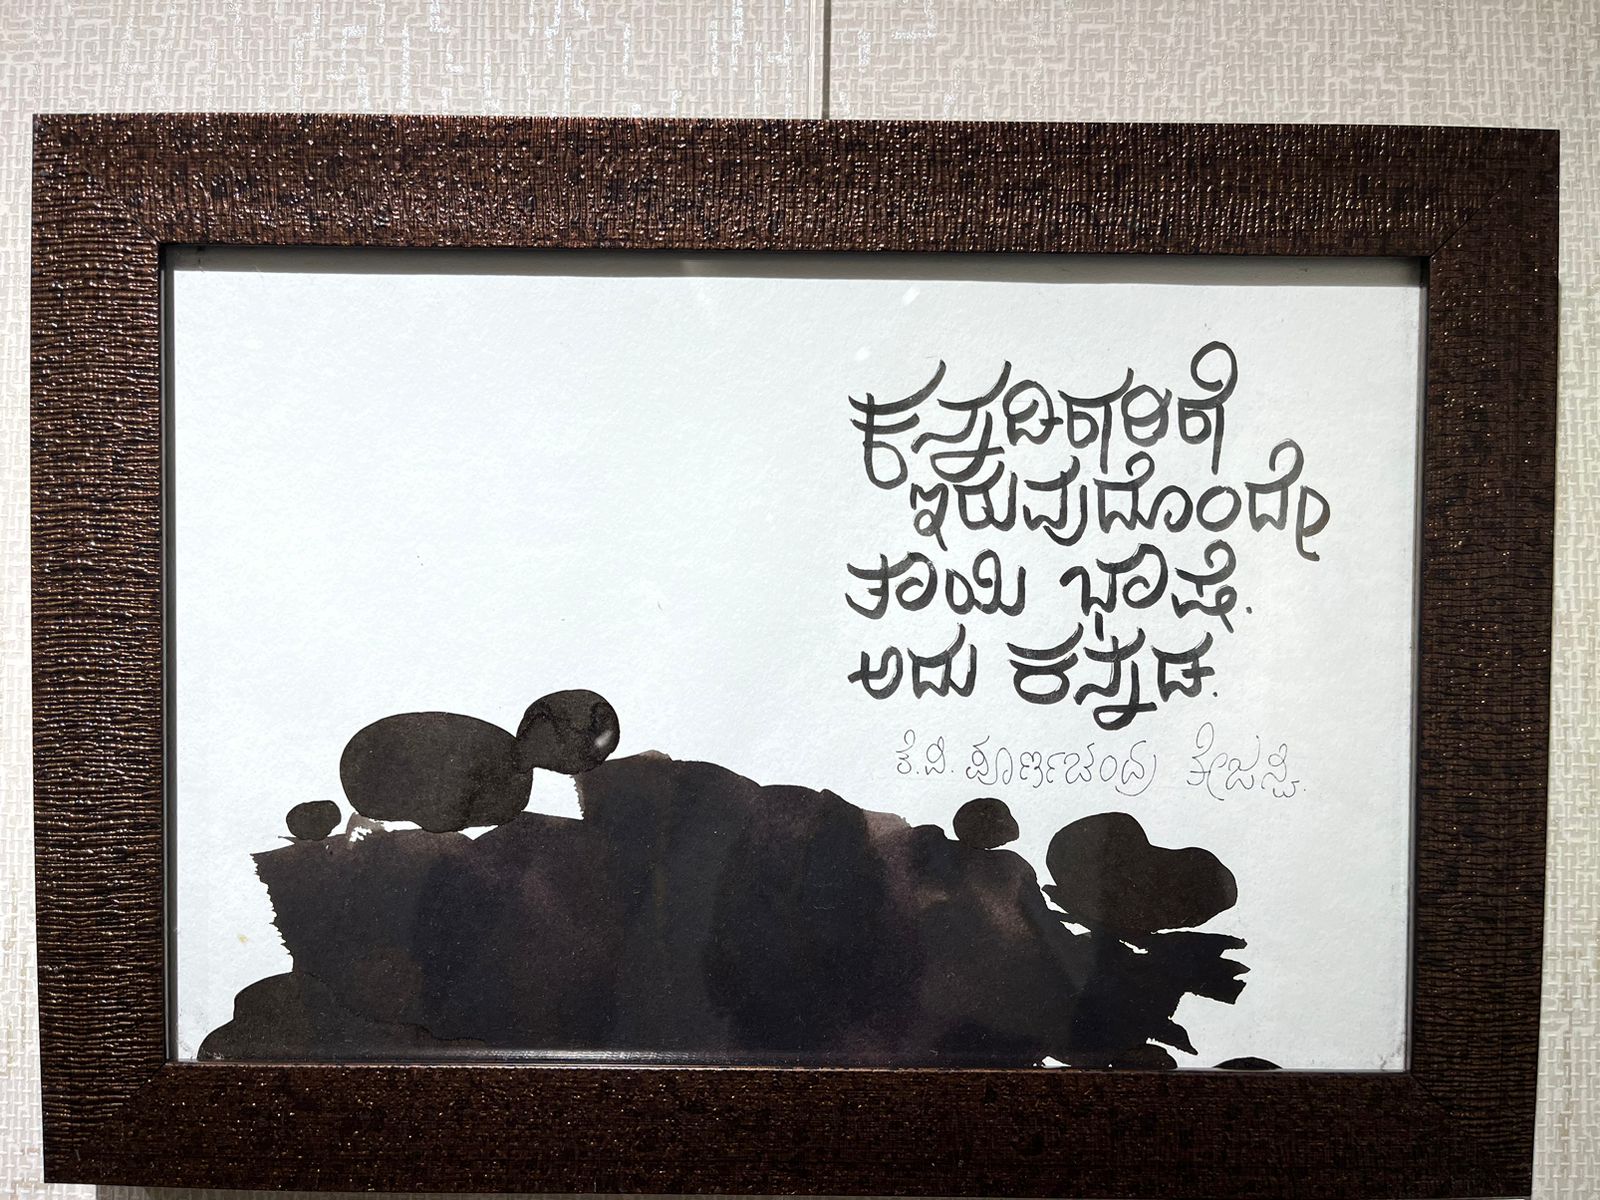 ಕನ್ನಡಿಗಳಿಗೆ
ಇರುವುದೊಂದೇ
ತಾಯಿ ಭಾಷೆ.
ಅದು ಕನ್ನಡ.
ಕೆ.ವಿ. ಪೂರ್ಣಚಂದ್ರ ತೇಜಸ್ವಿ.